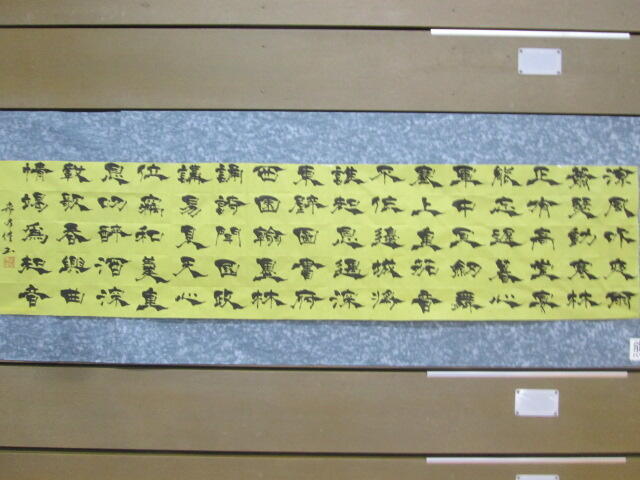 涼風吹夜雨
蕭瑟動寒林
正有高堂宴
能忘遲暮心
軍中宜劍舞
塞上重笳音
不作邊城將
誰知恩遇深
東壁圖書府
西園翰墨林
誦詩聞國政
講易見天心
位竊和羹重
恩叨醉酒深
載歌春興曲
情竭為知音